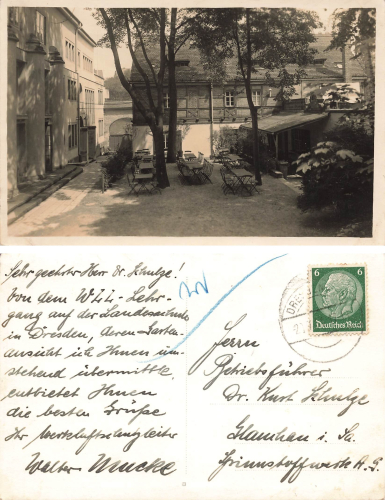 Sehr geehrter Herr Dr. Schulze!
Von dem WLL-Lehr-
gang auf der Landesschule
in Dresden, deren Garten-
ansicht ich Ihnen um-
stehend übermittle,
entbietet Ihnen
die besten Grüße
Ihr Werkluftschutzleiter
Walter Mucke
6 6
Deutsches Reich
DRESDEN
Herrn
Betriebsführer
Dr. Kurt Schulze
Glauchau i. Sa.
Spinnstoffwerk A.G.